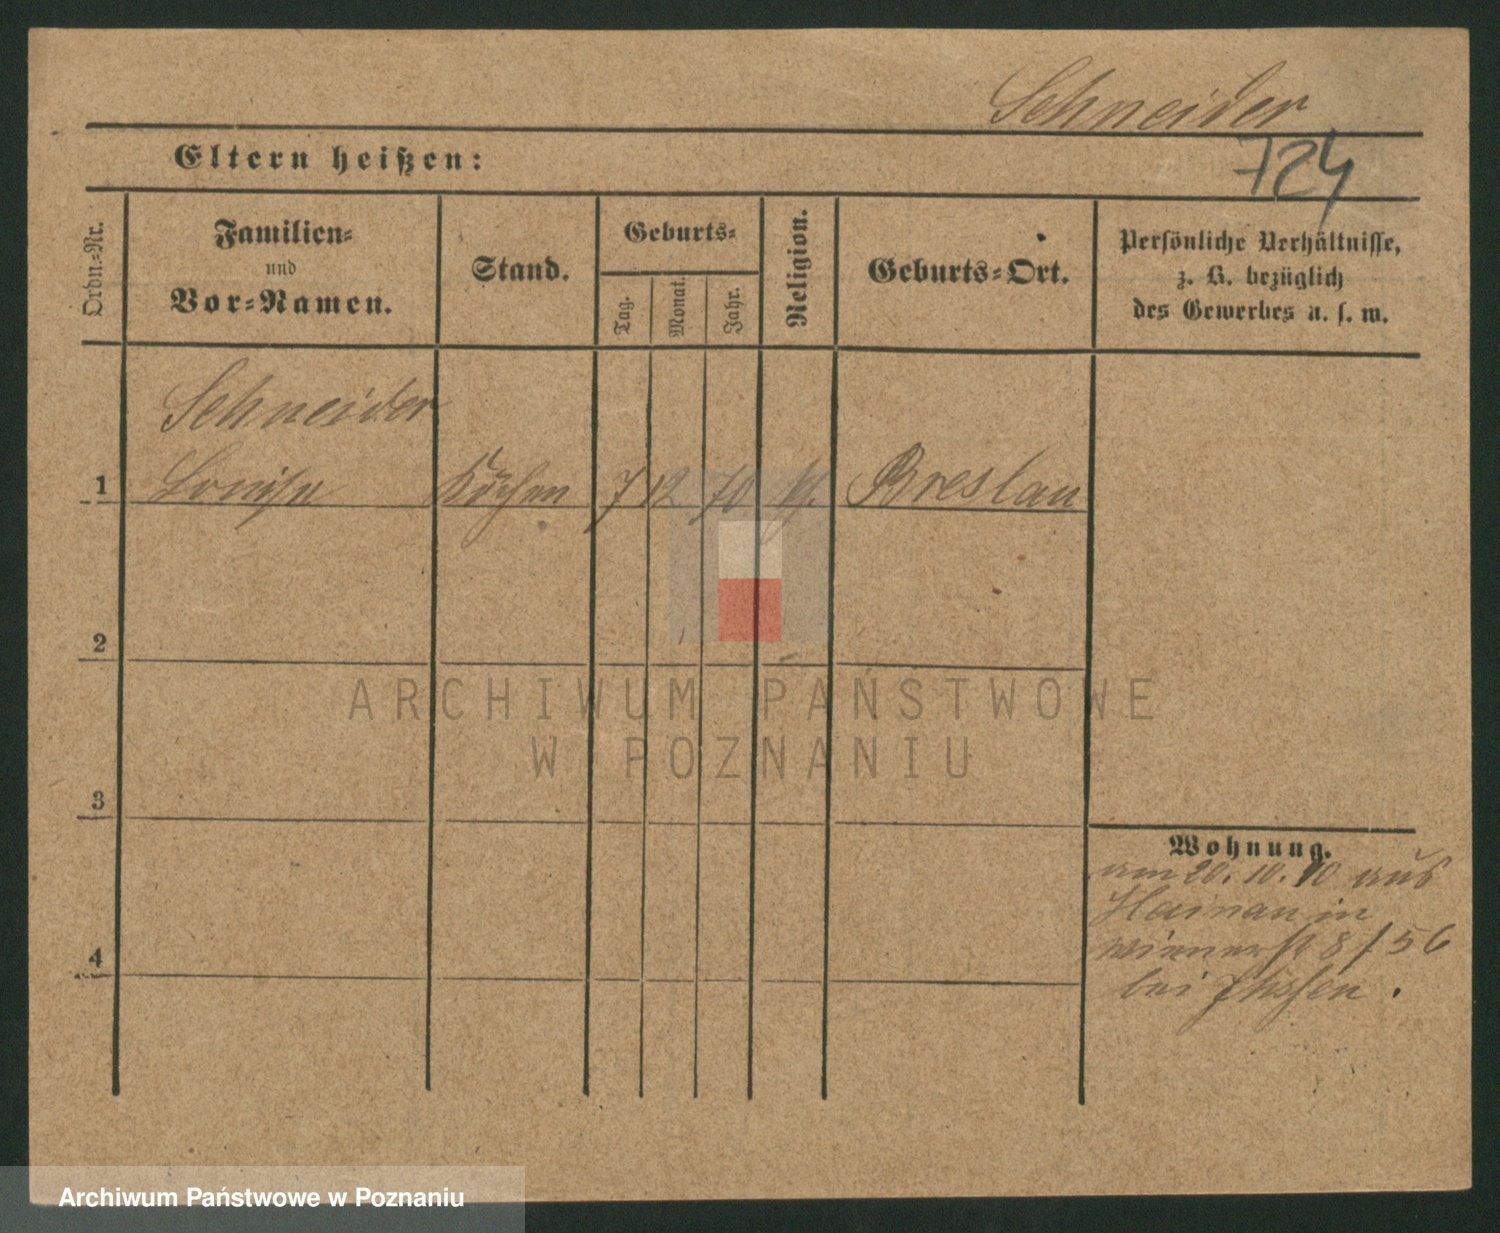 Schneider
724
Eltern heißen:
Ordn.-Nr.
Familien-
und
Vor-Namen.
Stand.
Geburts-
Tag.
Monat.
Jahr.
Religion.
Geburts-Ort.
Persönliche Verhältnisse,
z. B. bezüglich
des Gewerbes u. s. w.
Schneider
1 Louise 7 12 70 Breslau
2
3
4
Wohnung.
am 20. 10. 90 aus
Hainau in
8/56
bei
ARCHIWUM PAŃSTWOWE
W POZNANIU
Archiwum Państwowe w Poznaniu